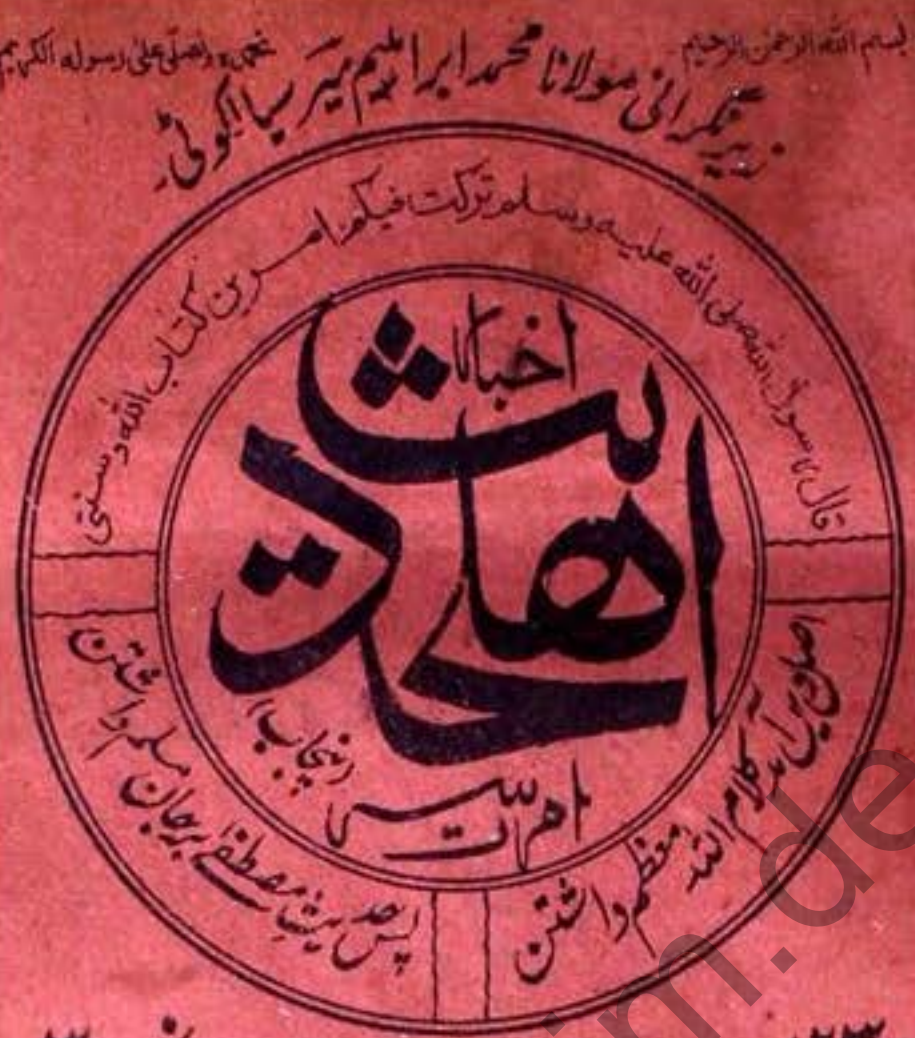 بسم الله الرحمن الرحيم
نحمده ونصلی علی رسوله الکریم
زیر نگرانی مولانا محمد ابراہیم میر سیالکوٹی
قال رسول الله صلی الله علیہ وسلم ترکت فیکم امرین کتاب الله وسنتی
اخبار
اهلحدیث
امرتسر
(پنجاب)
اصل دیں آمد کلام اللہ معظم داشتن
پس حدیث مصطفےٰ برجان مسلم داشتن